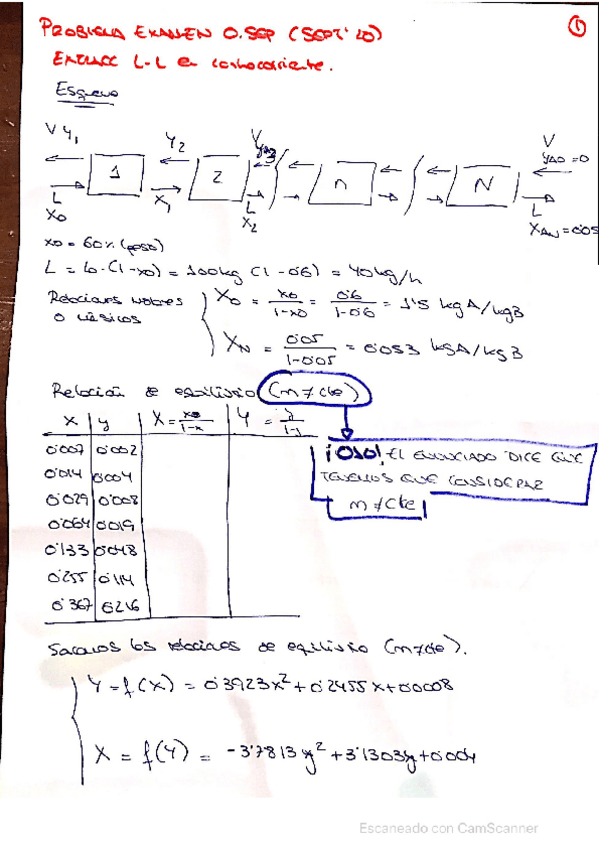 PROBLEMA EXAMEN O.SEP (SEPT'20)
①
EXTRACC L-L en contracorriente.
Esquema
V Y₁
Y₂
V
Y₃
V
YA0 = 0
1
2
n
N
L
X0
X₁
L
X₂
L
XAN = 0'05
x0 = 60% (peso)
L = L0·(1-x0) = 100kg (1-0'6) = 40kg/h
Relaciones
o másicos
X0 = x0/1-x0 = 0'6/1-0'6 = 1'5 kgA/kgB
XN = 0'05/1-0'05 = 0'053 kgA/kgB
Relación de equilibrio (m≠cte)
x y X = x/1-x Y = y/1-y
0'007 0'002
0'014 0'004
0'029 0'008
0'064 0'019
0'133 0'048
0'255 0'114
0'367 0'216
¡OJO! EL ENUNCIADO DICE QUE
TENEMOS QUE CONSIDERAR
m≠cte
Sacamos las relaciones de equilibrio (m≠cte).
Y = f(X) = 0'3923x² + 0'2455x + 0'0008
X = f(Y) = -3'7813y² + 3'1303y + 0'004
Escaneado con CamScanner